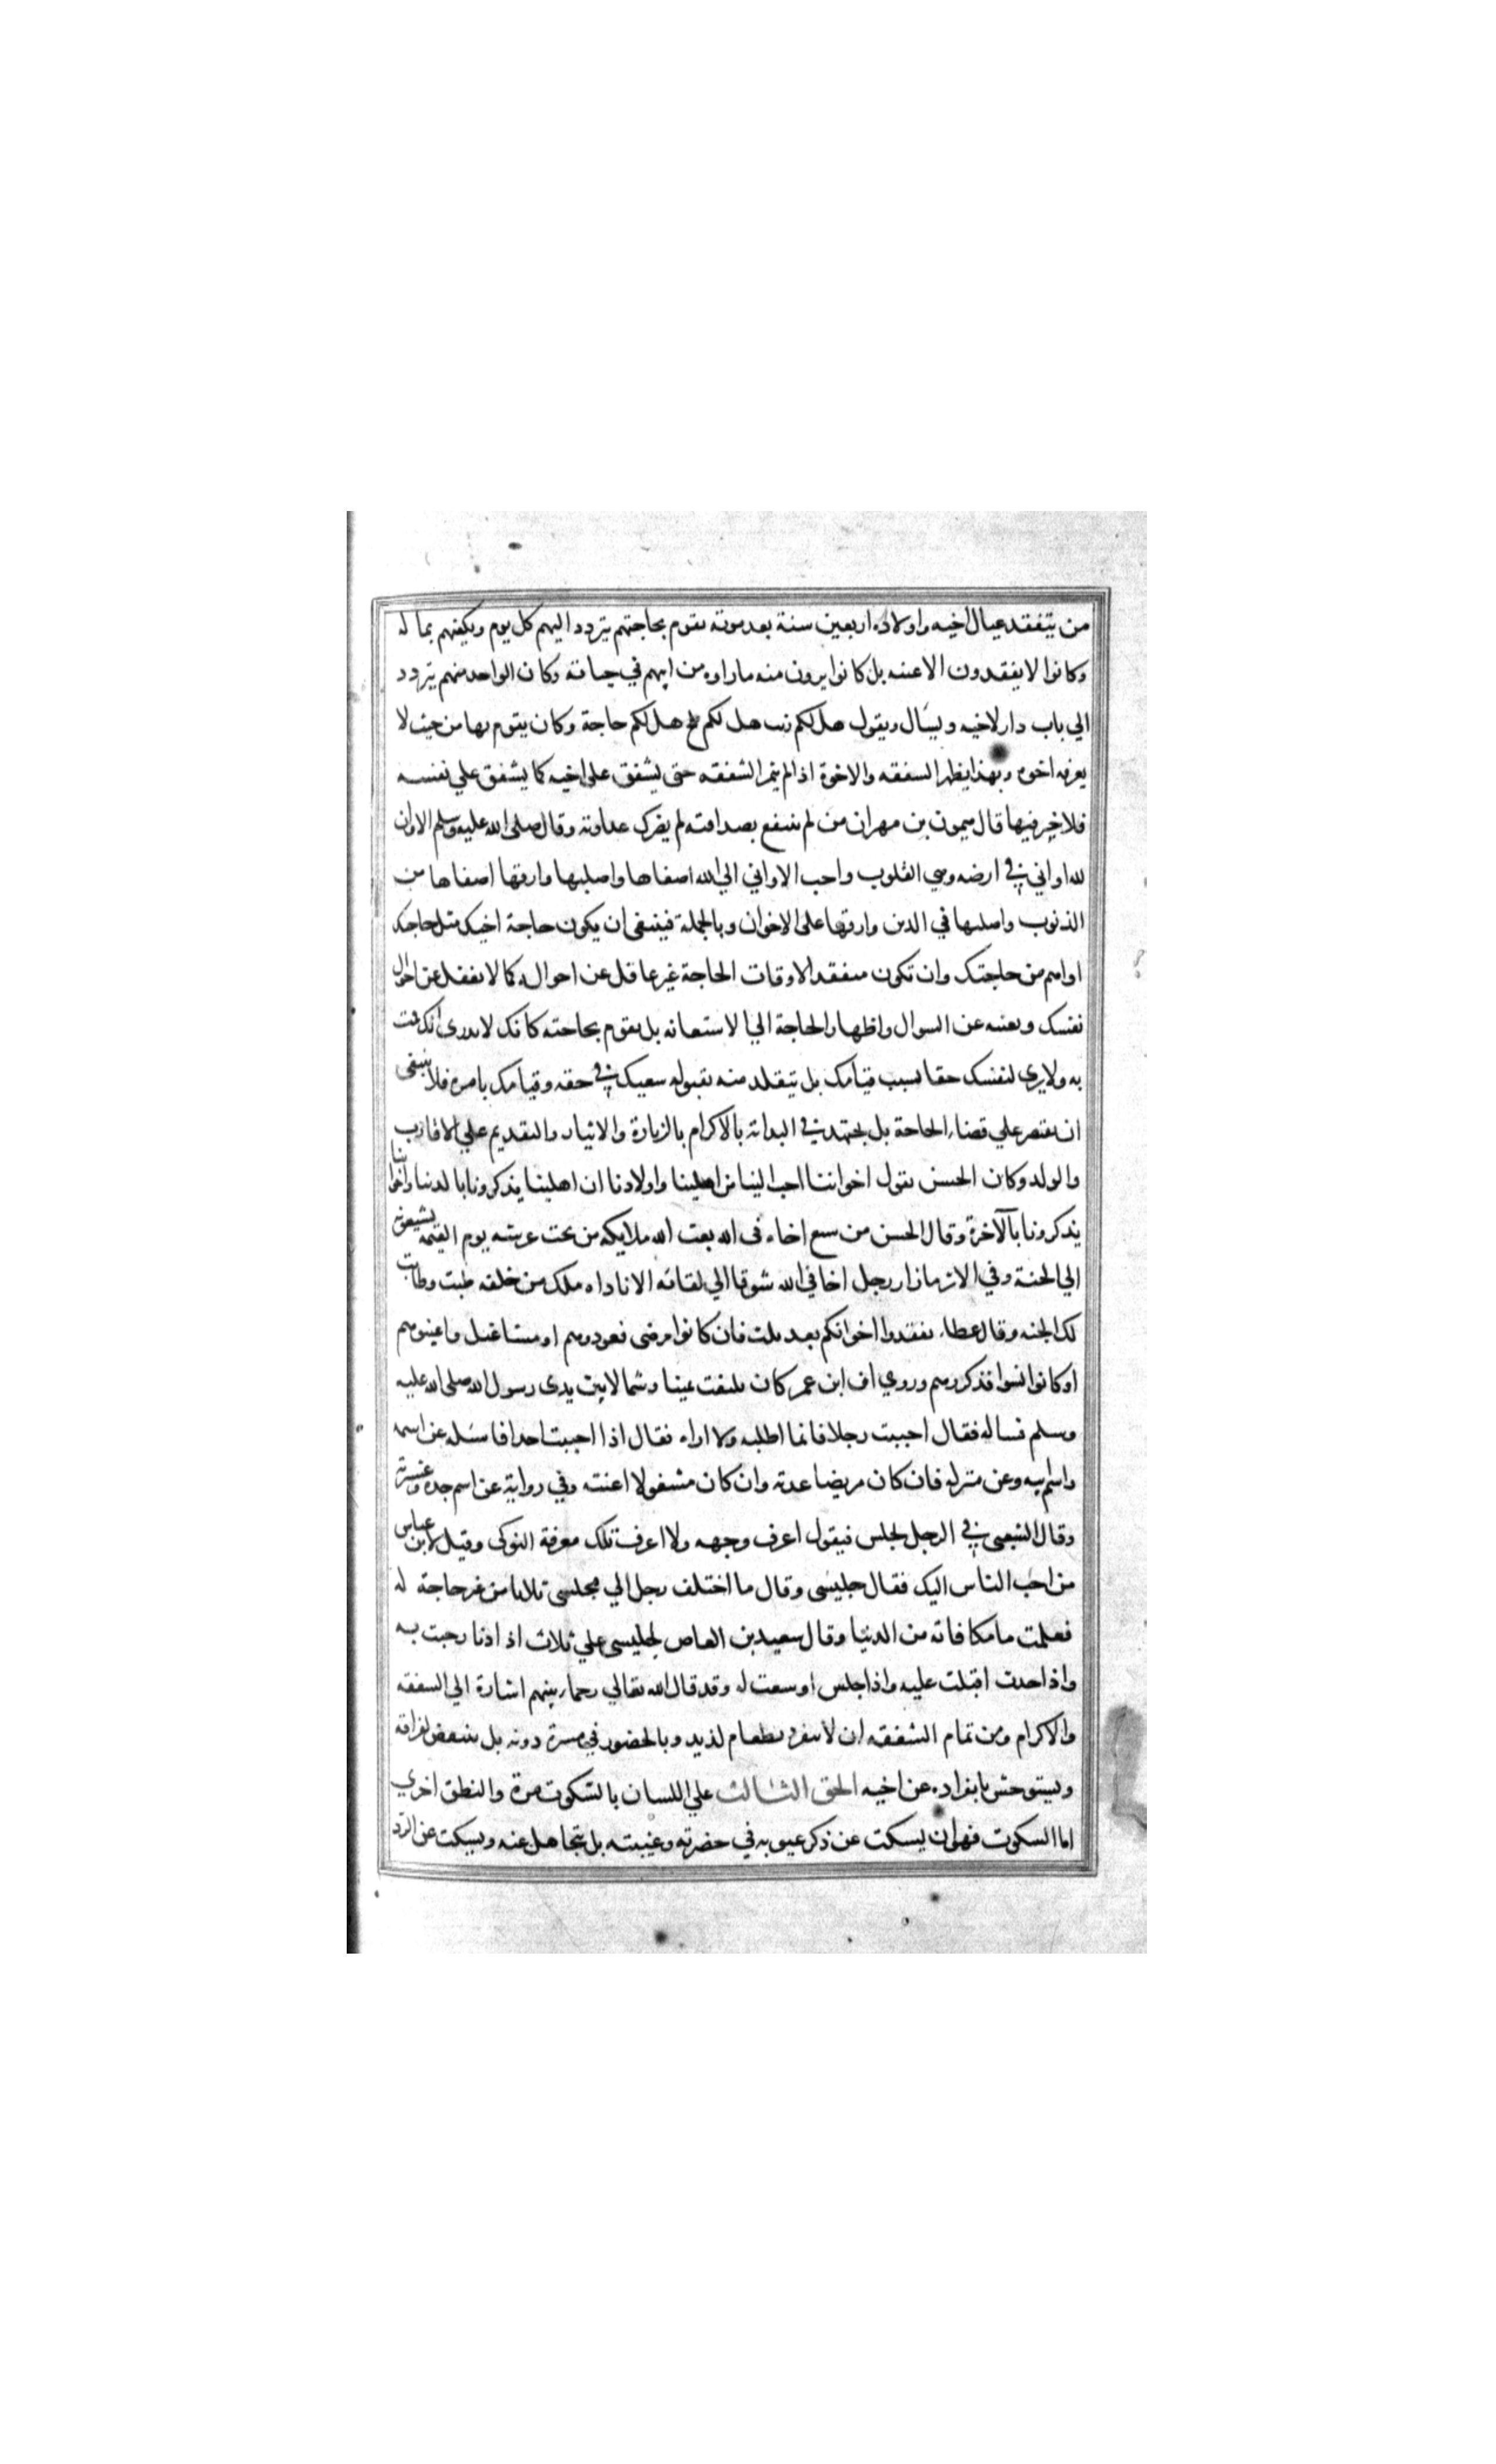 من يتفقد عيال اخيه واولاده اربعين سنة بعد موته يقوم بحاجتهم يتردد اليهم كل يوم ويكفيهم بماله
وكانوا لا يفقدون الا عينه بل كانوا يرون منه ما راوه من ابيهم في حياته وكان الواحد منهم يتردد
الي باب دار لاخيه ويسأل ويقول هل لكم زيت هل لكم ملح هل لكم حاجة وكان يقوم بها من حيث لا
يعرفه اخوه وبهذا يظهر الشفقه والاخوة اذا لم يثمر الشفقه حتى يشفق على اخيه كما يشفق علي نفسه
فلا خير فيها قال ميمون بن مهران من لم ينتفع بصداقته لم يضرك عداوته وقال صلى الله عليه وسلم الا وان
لله اواني في ارضه وهي القلوب واحب الاواني الي الله اصفاها واصلبها وارقها اصفاها من
الذنوب واصلبها في الدين وارقها على الاخوان وبالجملة فينبغى ان يكون حاجة اخيك مثل حاجتك
او اهم من حاجتك وان تكون متفقدا لاوقات الحاجة غير غافل عن احواله كما لا تغفل عن احوال
نفسك وتغنيه عن السوال واظهار الحاجة الي الاستعانه بل يقوم بحاجته كانك لا تدرى انك قمت
به ولا يرى لنفسك حقا بسبب قيامك بل تتقلد منه بقبوله سعيك في حقه وقيامك بامره فلا ينبغى
ان يقتصر علي قضاء الحاجة بل يجتهد في البداته بالاكرام بالزيارة والايثار والتقديم علي الاقارب
والولد وكان الحسن يقول اخواننا احب الينا من اهلينا واولادنا ان اهلينا يذكرونا بالدنيا واخواننا
يذكرونا بالآخرة وقال الحسن من سيع اخاه في الله بعث الله ملايكه من تحت عرشه يوم القيمة يشيعونه
الي الجنة وفي الاثر ما زار رجل اخا في الله شوقا الي لقائه الا ناداه ملك من خلفه طبت وطابت
لك الجنه وقال عطاء تفقدوا اخوانكم بعد ثلث فان كانوا مرضى فعودوهم او مشاغيل فاعينوهم
او كانوا نسوا فذكروهم وروي ان ابن عمر كان يلتفت يمينا وشمالا بين يدى رسول الله صلى الله عليه
وسلم فساله فقال احببت رجلا فانما اطلبه ولا اراه فقال اذا احببت احدا فاسئله عن اسمه
واسم ابيه وعن منزله فان كان مريضا عدته وان كان مشغولا اعنته وفي رواية عن اسم جده وعشيرته
وقال الشعبى في الرجل يجلس فيقول اعرف وجهه ولا اعرف تلك معرفة النوكى وقيل لابن عباس
من احب الناس اليك فقال جليسى وقال ما اختلف رجل الي مجلسى ثلاثا من غير حاجة له
فعلمت ما مكافاته من الدنيا وقال سعيد بن العاص لجليسى علي ثلاث اذا دنا رحبت به
واذا حدث اقبلت عليه واذا جلس اوسعت له وقد قال الله تعالي رحماء بينهم اشارة الي الشفقه
والاكرام ومن تمام الشفقه ان لا ينفرد بطعام لذيد وبالحضور في مسرة دونه بل يتنغص لفراقه
ويستوحش بانفراده عن اخيه الحق الثالث علي اللسان بالسكوت مرة والنطق اخري
اما السكوت فهو ان يسكت عن ذكر عيوبه في حضرته وغيبته بل يتجاهل عنه ويسكت عن الرد